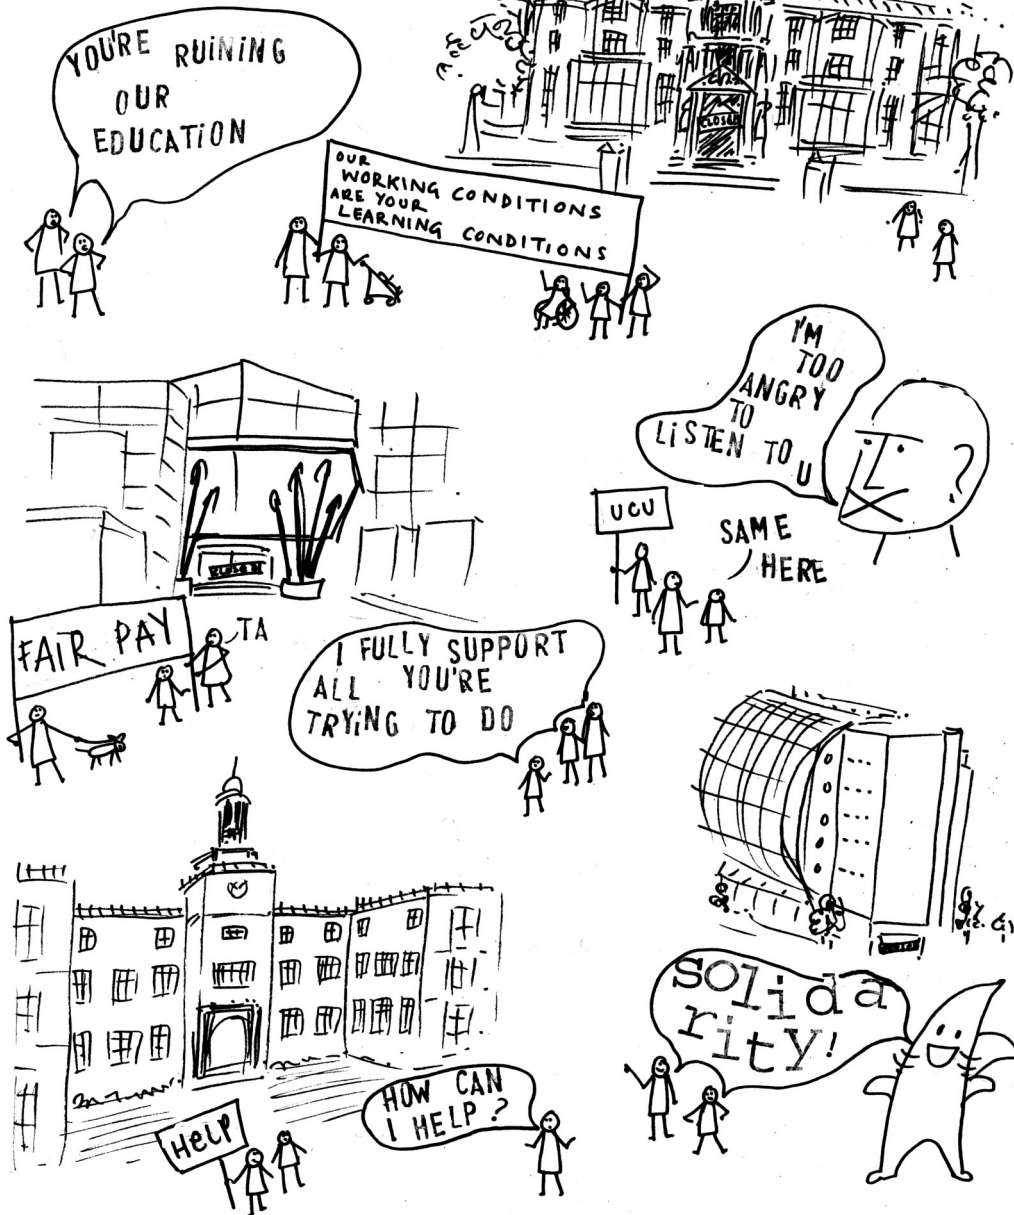 YOU'RE RUiNiNG
OUR
EDUCATiON
CLOSED
OUR
WORKING CONDITIONS
ARE YOUR
LEARNING CONDITIONS
I'M
TOO
ANGRY
TO
LiSTEN TO U
UCU
SAME
HERE
CLOSED
FAIR PAY
TA
I FULLY SUPPORT
ALL YOU'RE
TRYiNG TO DO
solida
rity!
HOW CAN
I HELP?
HELP